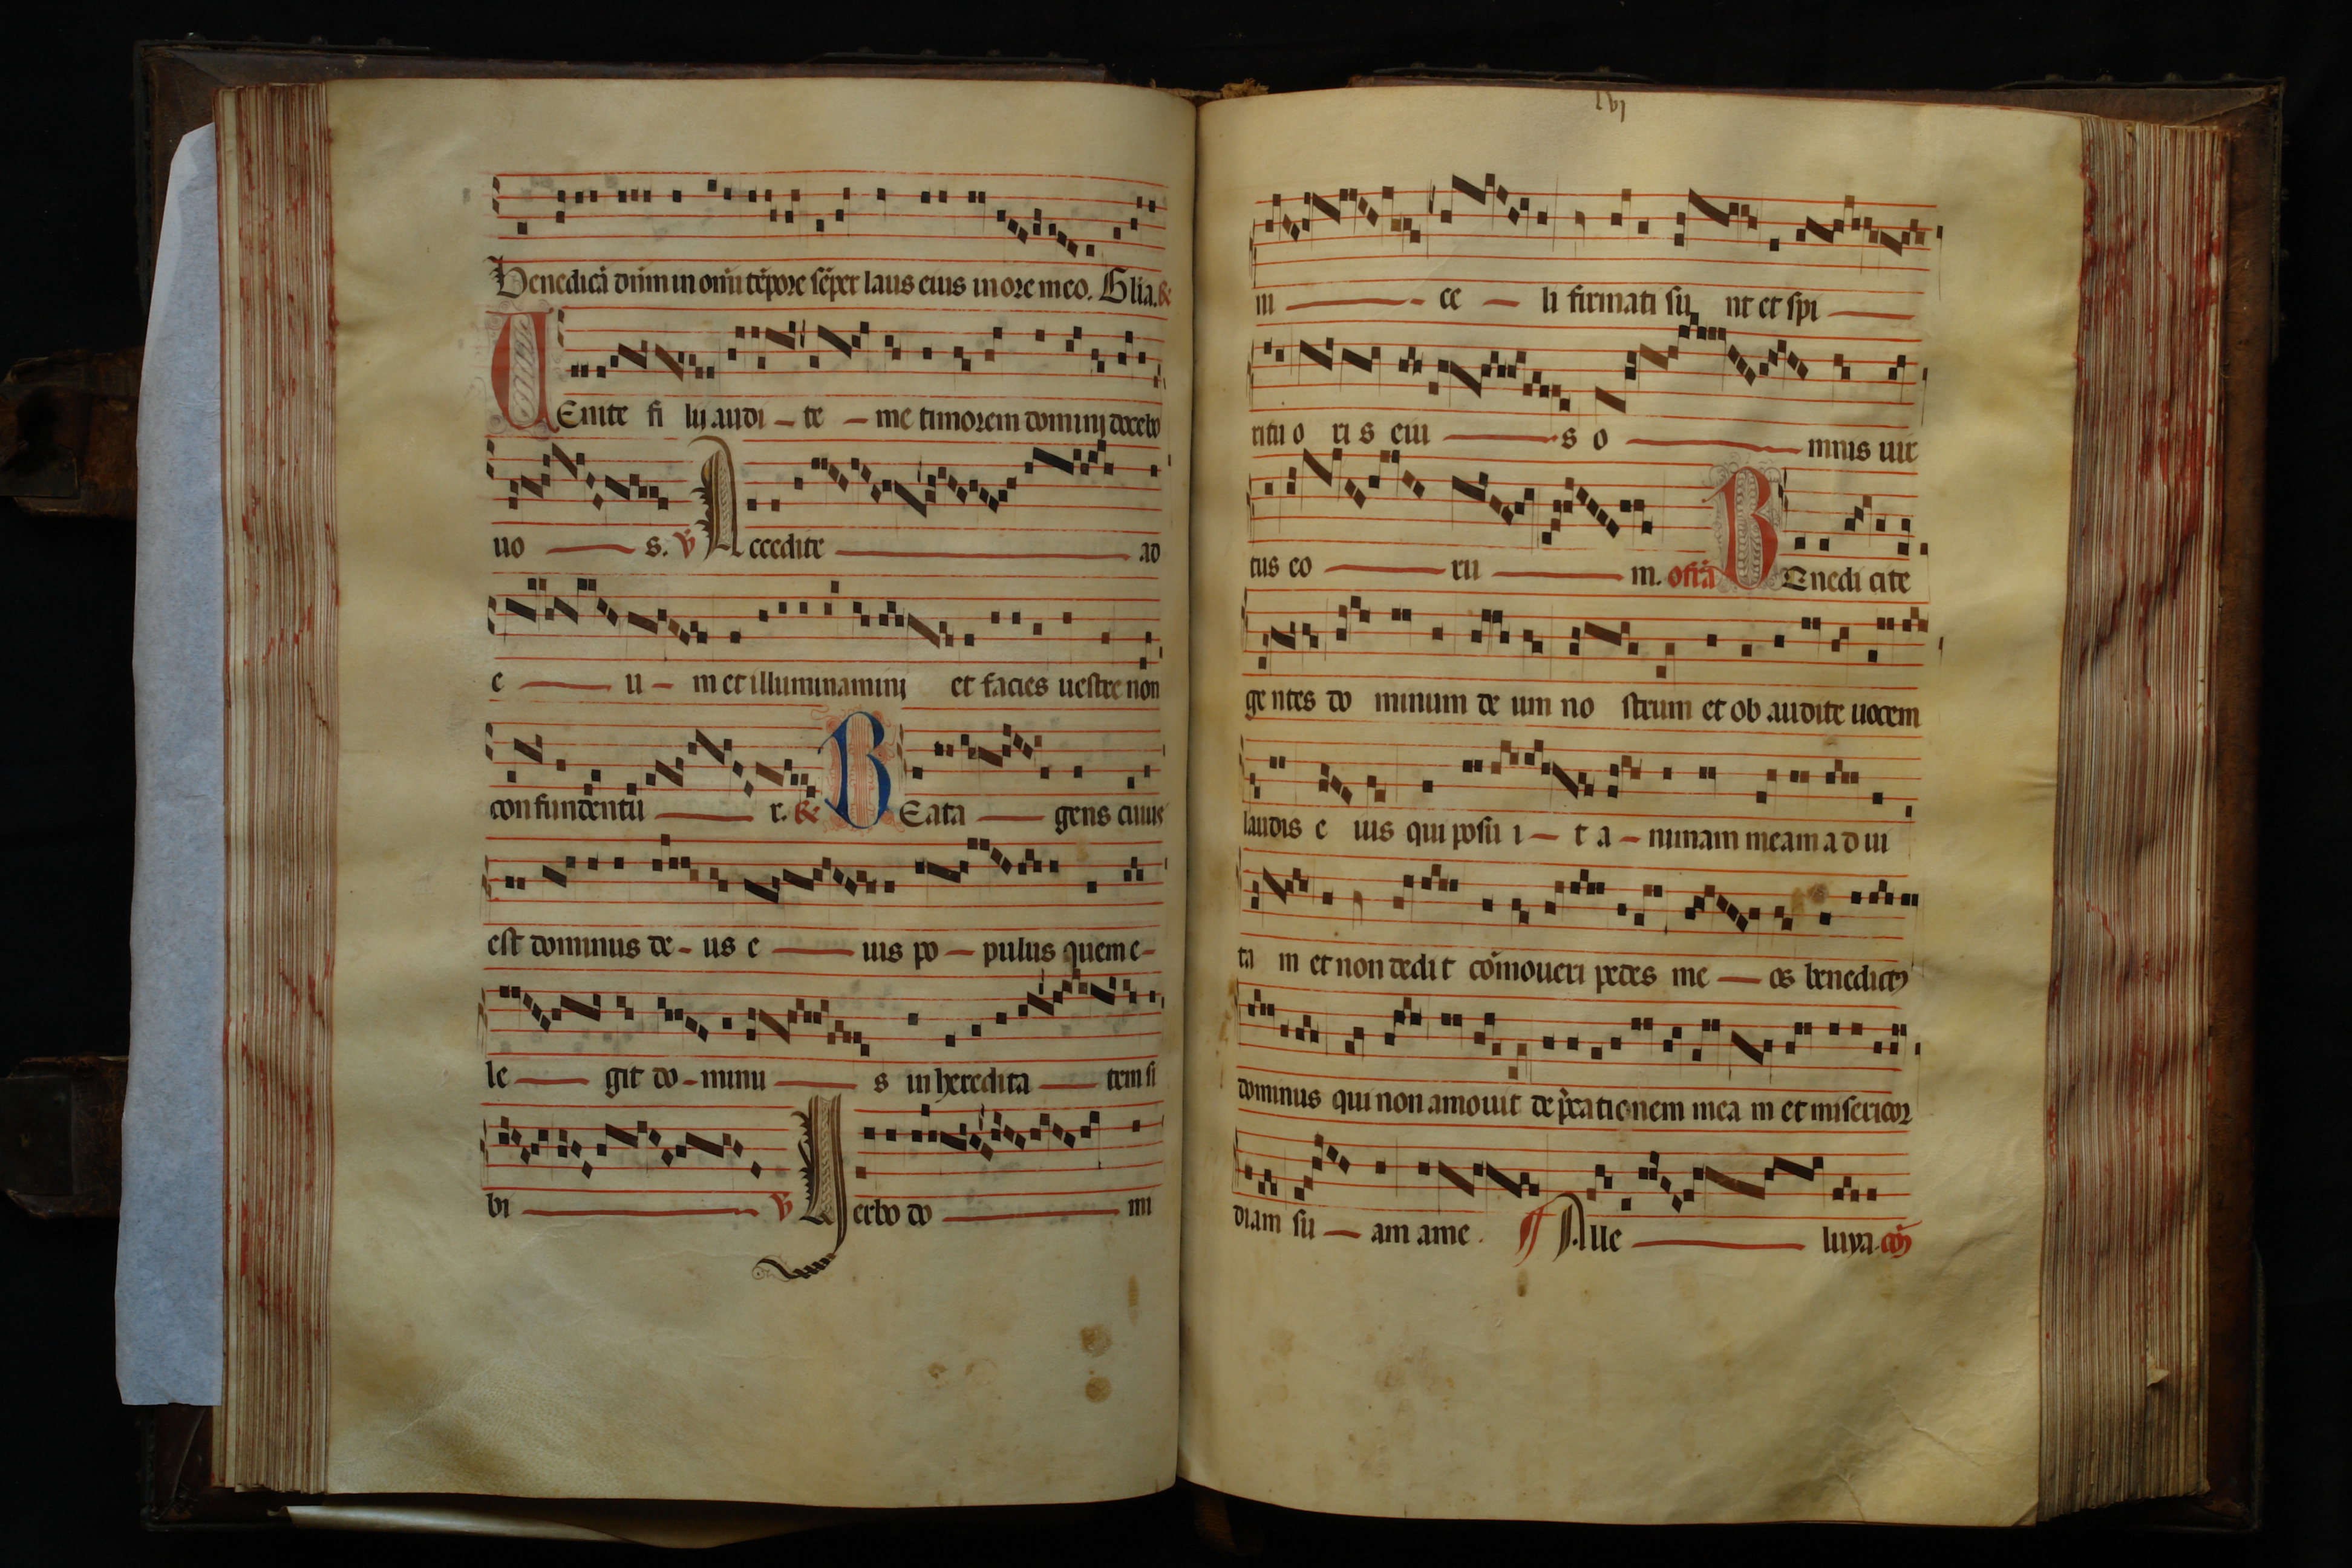 Benedicā dn̄m in om̄i tēpore sēper laus eius in ore meo. Glīa. &
UEnite fi lij audi - te - me timorem dominj docebo
uo - s. ℣ Accedite - ad
e - u - m et illuminaminj et facies uestre non
confundentu - r. & BEata - gens cuius
est dominus de - us e - ius po - pulus quem e -
le - git do - minu - s in heredita - tem si
bi - ℣ Uerbo do - mi
lvi
ni - ce - li firmati su nt et spi -
ritu o ri s eiu - s o - mnis uir
tus eo - ru - m. offr̄a BEnedi cite
ge ntes do minum de um no strum et ob audite uocem
laudis e ius qui posu i - t a - nimam meam a d ui
ta m et non dedi t cōmoueri pedes me - os benedict9
dominus qui non amouit dep̄catio nem mea m et misericor
diam su - am a me. ¶ Alle - luya. cō